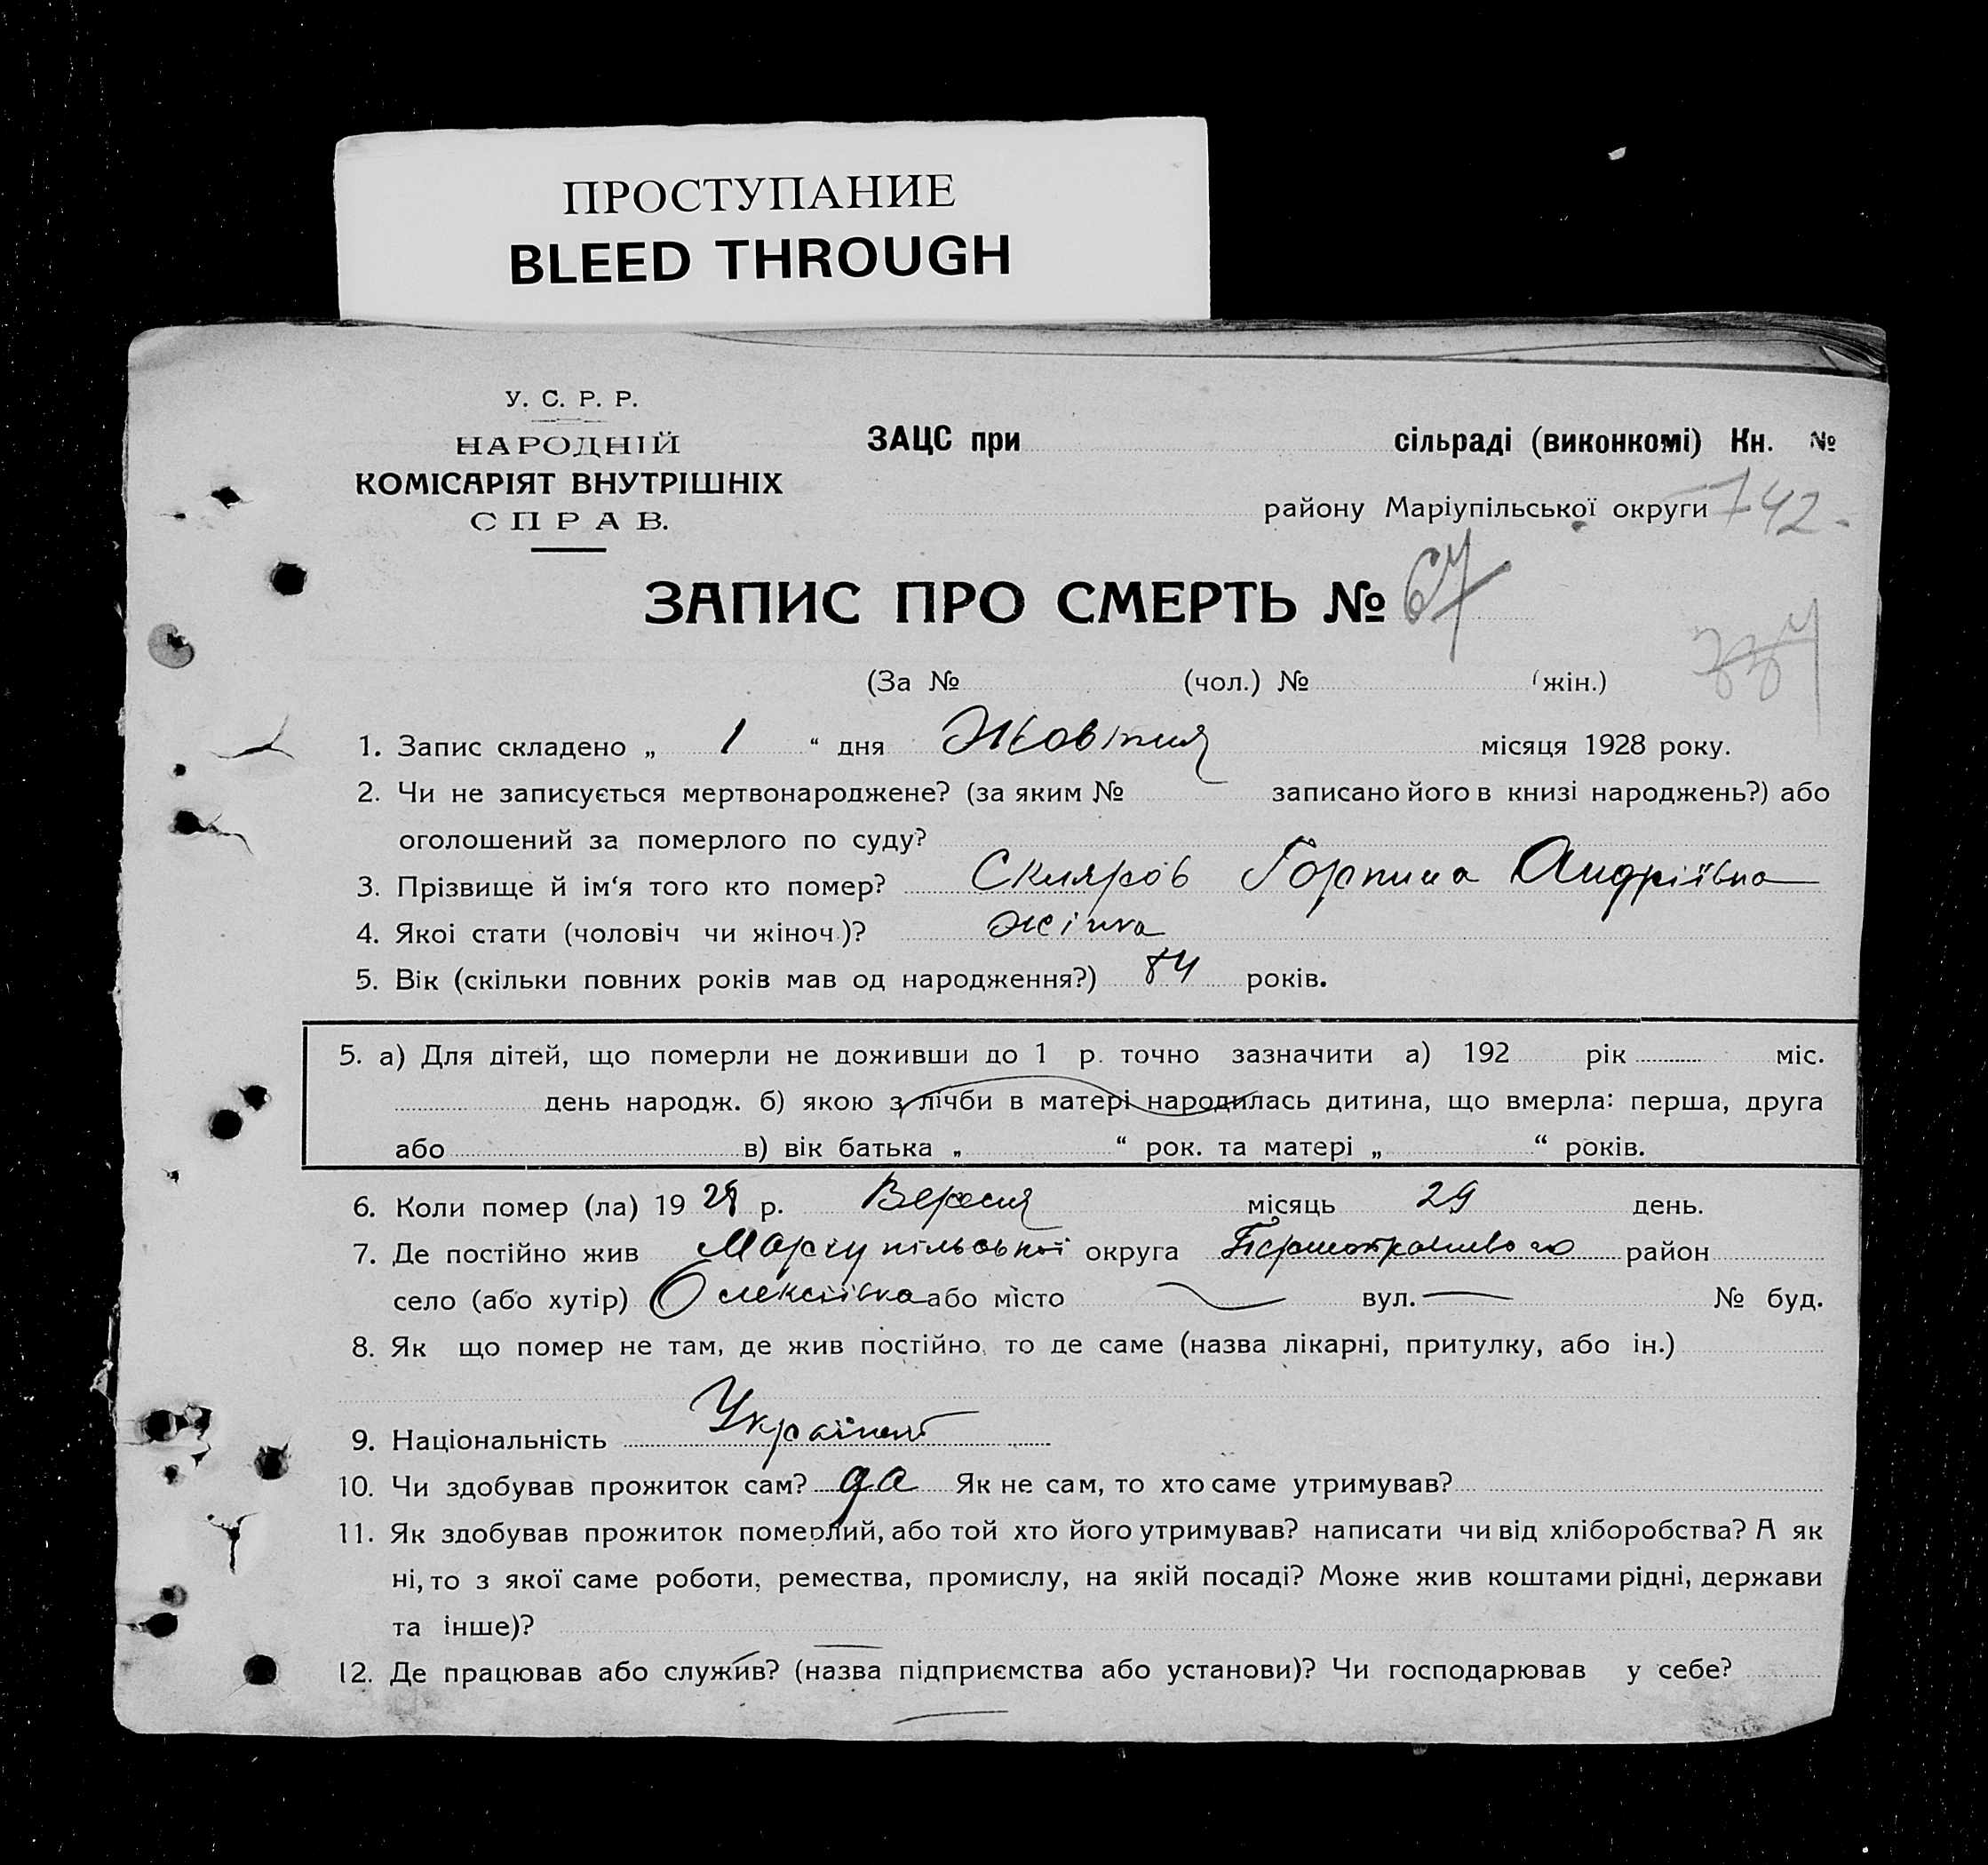 ПРОСТУПАНИЕ
BLEED THROUGH
У. С. Р. Р.
НАРОДНІЙ
КОМІСАРІЯТ ВНУТРІШНІХ
СПРАВ.
ЗАЦС при сільраді (виконкомі) Кн. №
району Маріупільської округи 742.
ЗАПИС ПРО СМЕРТЬ № 67
(За № (чол.) № (жін.)
1. Запис складено „ 1 “ дня Жовтня місяця 1928 року.
2. Чи не записується мертвонароджене? (за яким № записано його в книзі народжень?) або
оголошений за померлого по суду?
3. Прізвище й ім‘я того кто помер? Скляров Горпина Андріївна
4. Якоі стати (чоловіч чи жіноч.)? жінка
5. Вік (скільки повних років мав од народження?) 84 років.
5. а) Для дітей, що померли не доживши до 1 р. точно зазначити а) 192 рік міс.
день народж. б) якою з лічби в матері народилась дитина, що вмерла: перша, друга
або в) вік батька „ “ рок. та матері „ “ років.
6. Коли помер (ла) 19 28 р. Вересня місяць 29 день.
7. Де постійно жив Маріупільської округа район
село (або хутір) Олексіївка або місто вул. № буд.
8. Як що помер не там, де жив постійно, то де саме (назва лікарні, притулку, або ін.)
9. Національність
10. Чи здобував прожиток сам? да Як не сам, то хто саме утримував?
11. Як здобував прожиток померлий, або той хто його утримував? написати чи від хліборобства? А як
ні, то з якої саме роботи, ремества, промислу, на якій посаді? Може жив коштами рідні, держави
та інше)?
12. Де працював або служив? (назва підприємства або установи)? Чи господарював у себе?